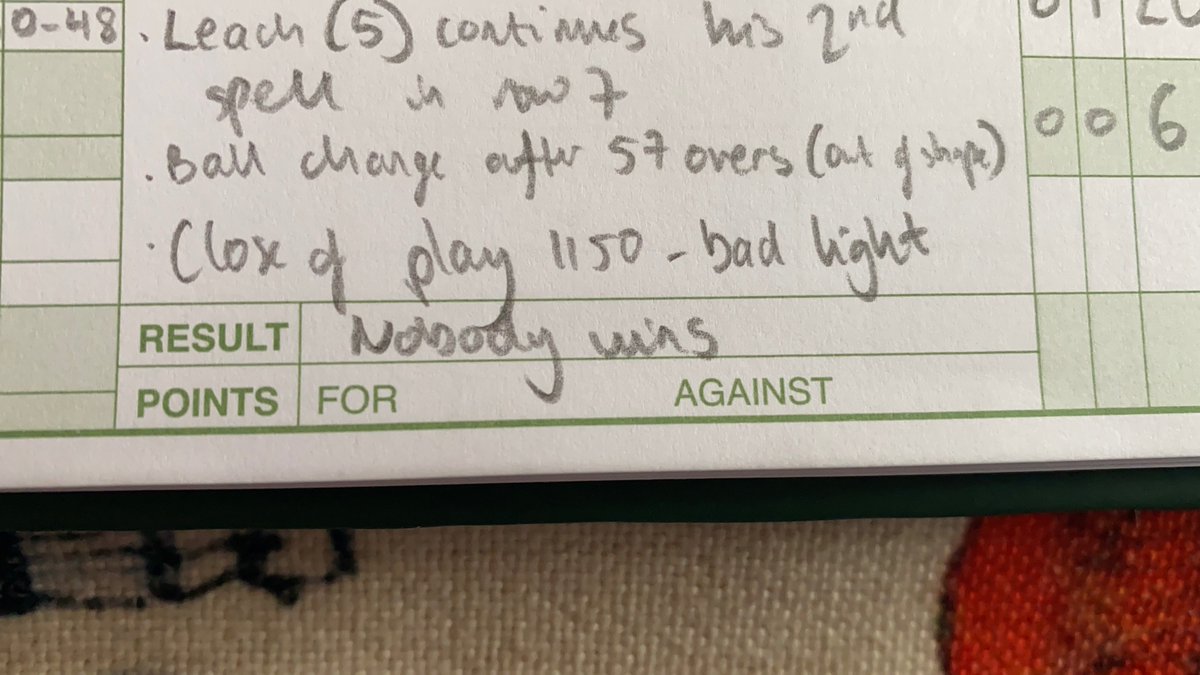 0-48
. Leach (5) continues his 2nd
spell in row 7
. Ball change after 57 overs (out of shape)
. Close of play 1150 - bad light
0 0 6
RESULT Nobody wins
POINTS FOR AGAINST